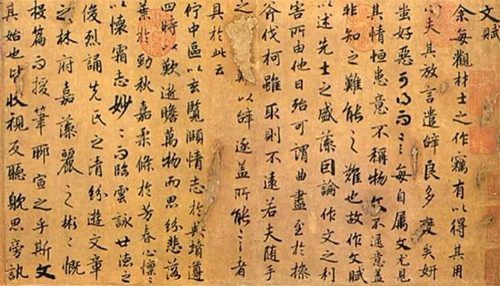 文賦
余每觀材士之作竊有以得其用
心夫其放言遣辭良多變矣妍
蚩好惡可得而言每自屬文尤見
其情恒患意不稱物文不逮意蓋
非知之難能之難也故作文賦
以述先士之盛藻因論作文之利
害所由他日殆可謂曲盡至於操
斧伐柯雖取則不遠若夫隨手
之以辭逐蓋所能言者
具於此云
佇中區以玄覽頤情志於典墳遵
四時以歎逝瞻萬物而思紛悲落
葉於勁秋嘉柔條於芳春心懍〻
以懷霜志妙〻而臨雲詠世德之
俊烈誦先民之清芬遊文章
之林府嘉藻麗之彬〻慨
投篇而援筆聊宣之乎斯文
其始也皆收視反聽耽思旁訊